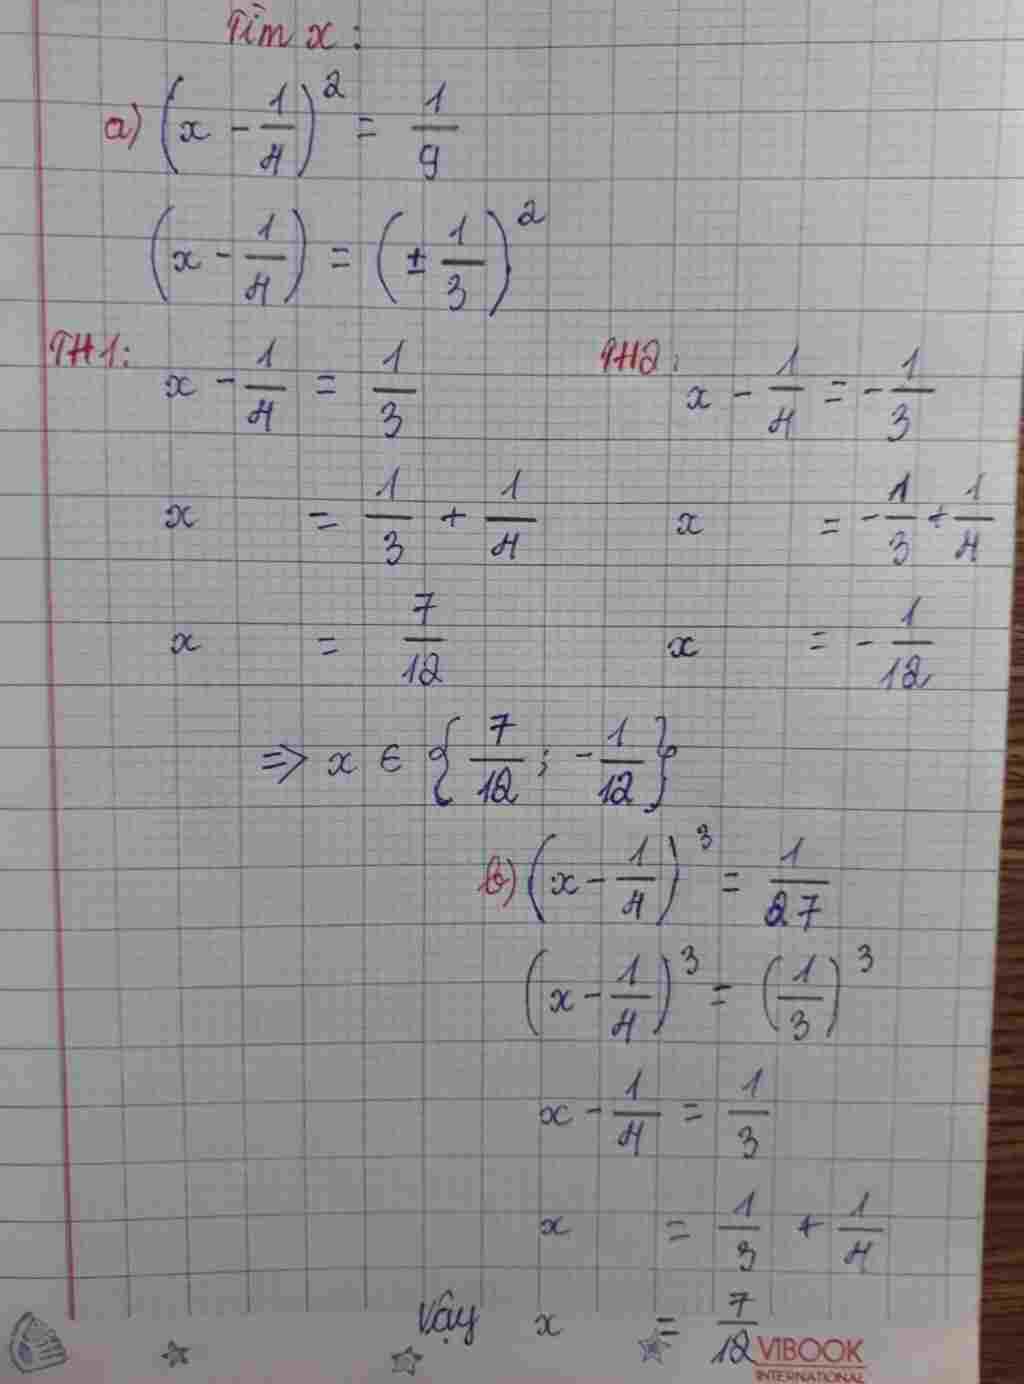 Tìm x:
a) (x - 1/4)² = 1/9
(x - 1/4) = (± 1/3)²
TH1: x - 1/4 = 1/3 TH2: x - 1/4 = - 1/3
x = 1/3 + 1/4 x = - 1/3 + 1/4
x = 7/12 x = - 1/12
=> x ∈ {7/12 ; - 1/12}
b) (x - 1/4)³ = 1/27
(x - 1/4)³ = (1/3)³
x - 1/4 = 1/3
x = 1/3 + 1/4
Vậy x = 7/12
VIBOOK
INTERNATIONAL